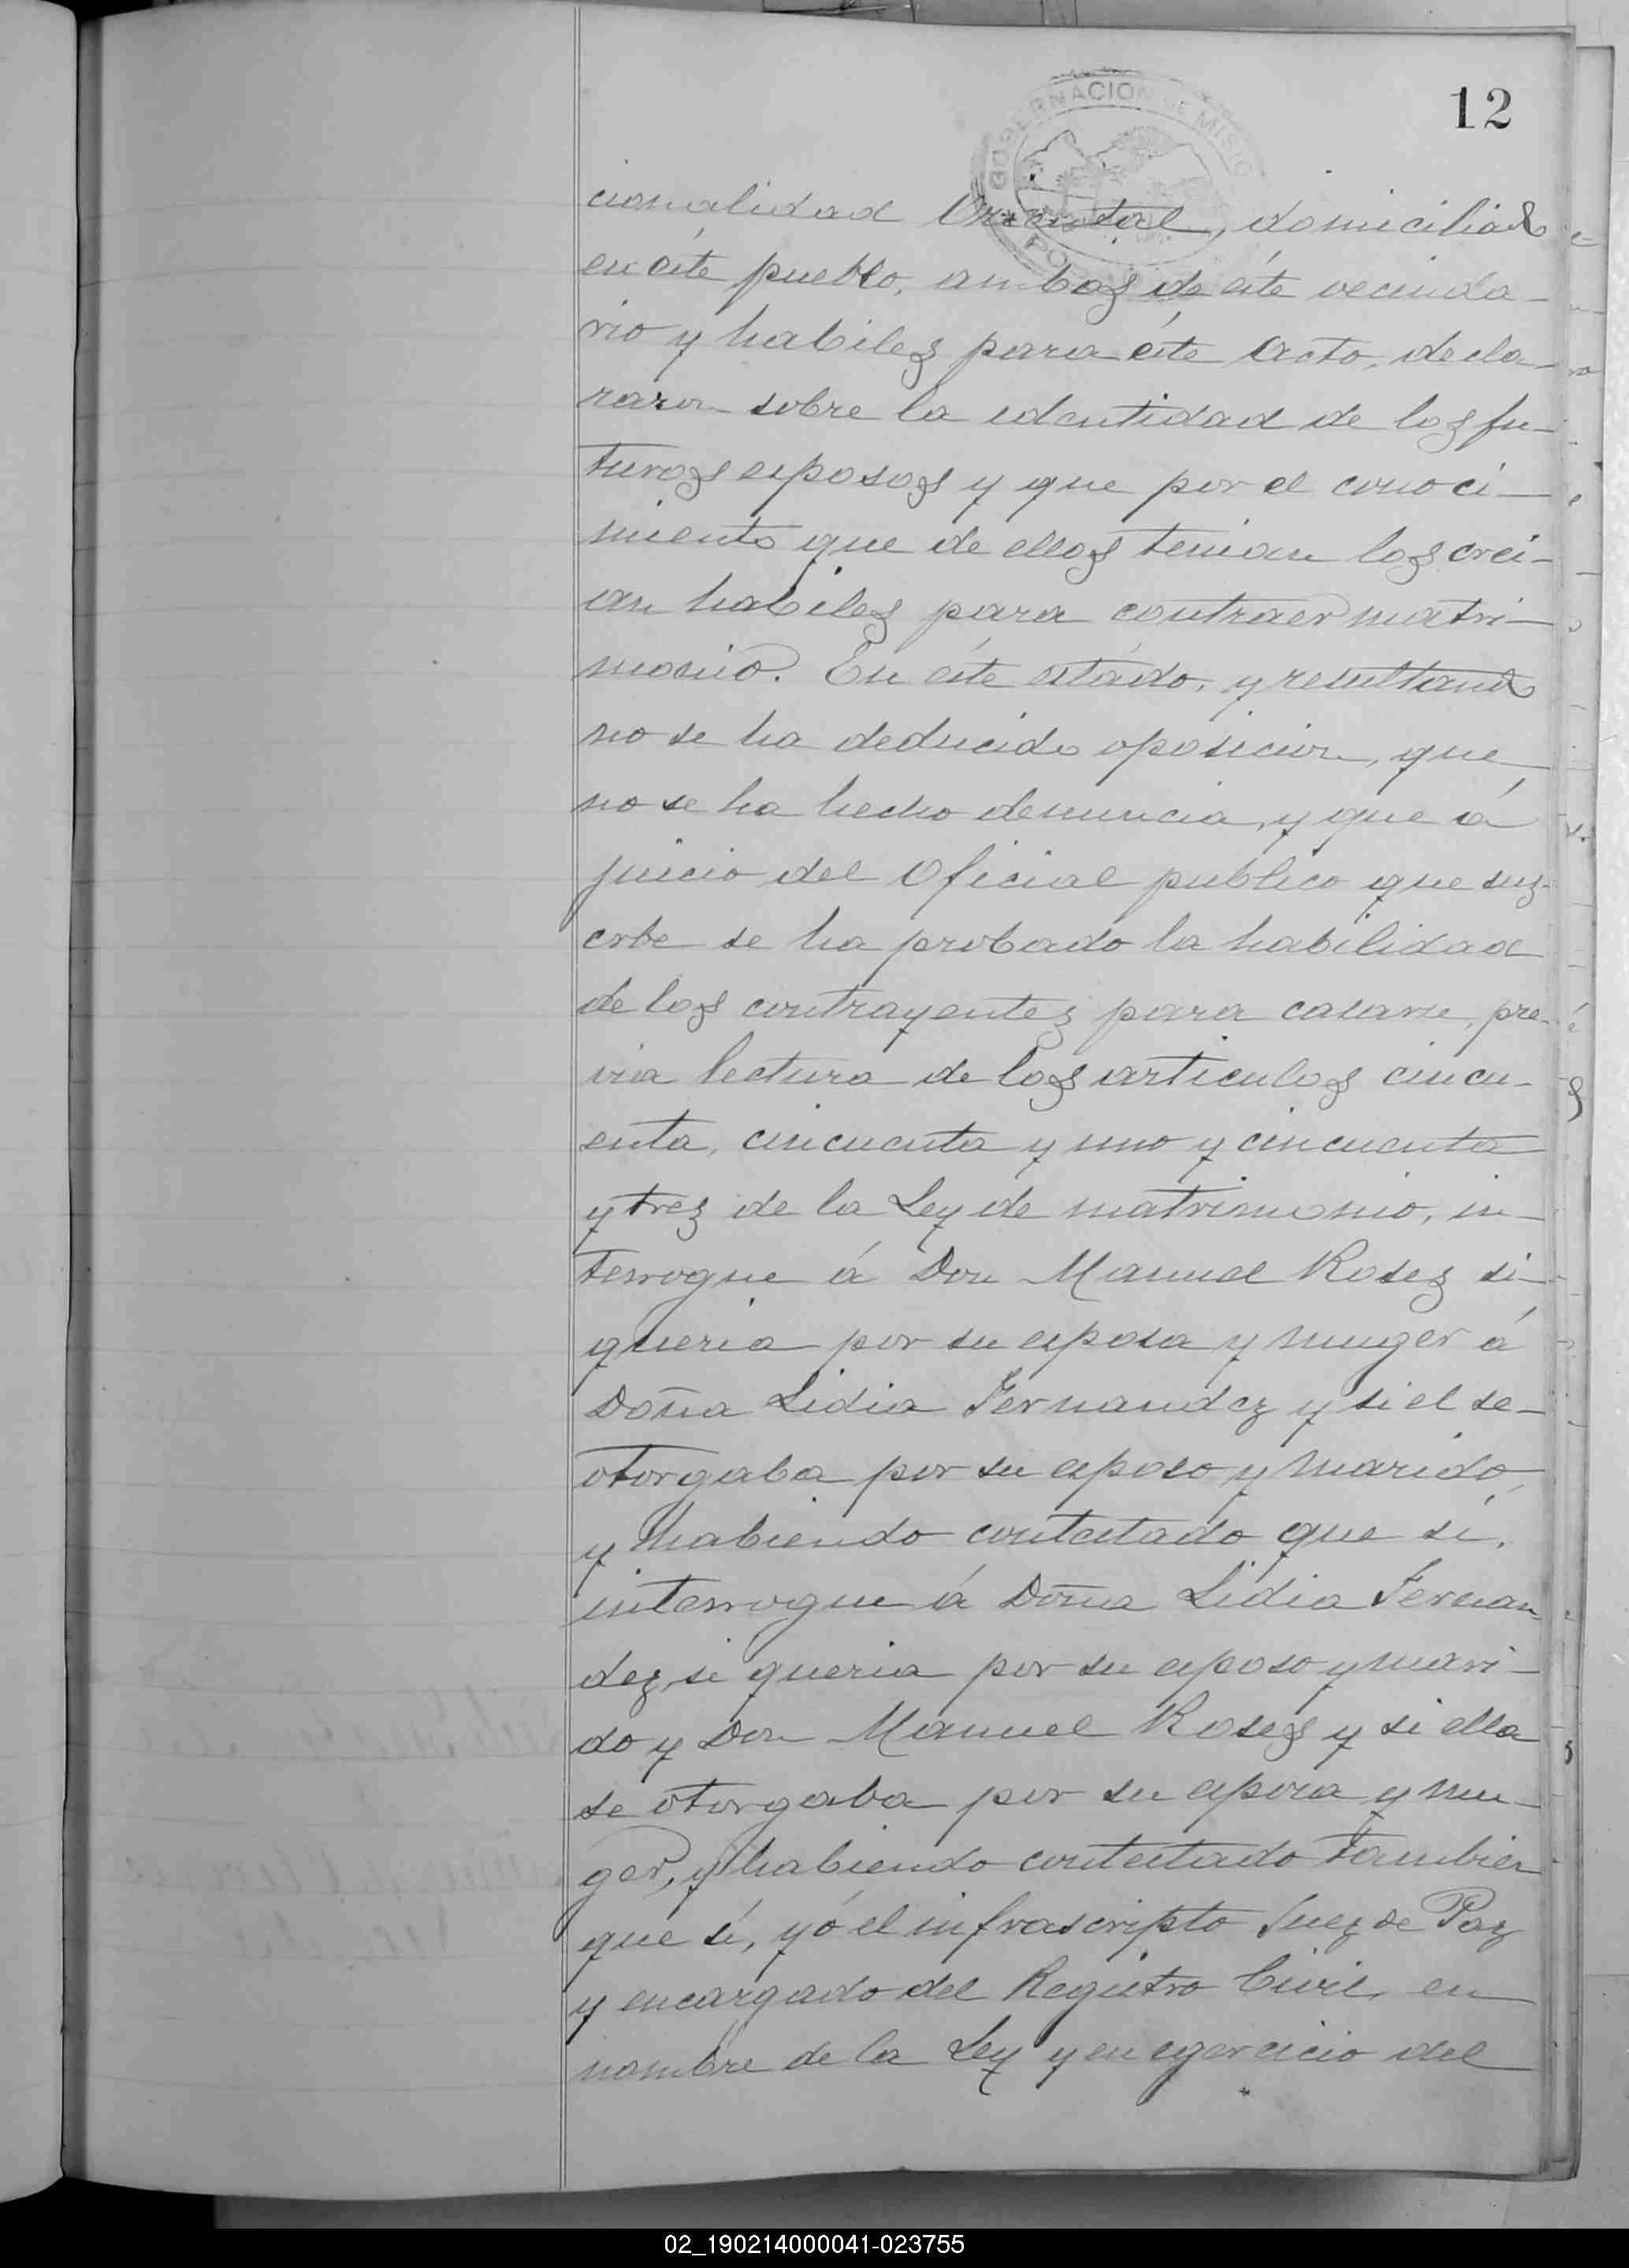 12
GOBERNACION DE MISIO
cionalidad Oriental, domiciliado
en éste pueblo, ambos de éste vecinda-
rio y habiles para éste Acto, decla-
raron sobre la identidad de los fu-
turos esposos y que por el conoci-
miento que de ellos tenian los crei-
an habiles para contraer matri-
monio. En éste estádo, y resultando
no se ha deducido oposicion, que
no se ha hecho denuncia, y que á
juicio del Oficial publico que sus-
crbe se ha probado la habilidad
de los contrayentes para casarse, pre-
via lectura de los articulos cincu-
enta, cincuenta y uno y cincuenta
y tres de la Ley de matrimonio, in-
terrogue á Don Manuel Roses si
queria por su esposa y muger á
Doña Lidia Fernandez y si el se
otorgaba por su esposo y marido,
y habiendo contestado que sí,
interrogue á Doña Lidia Fernan-
dez, si queria por su esposo y mari-
do y Don Manuel Roses y si ella
se otorgaba por su esposa y mu-
ger, y habiendo contestado tambien
que sí, yó el infrascripto Juez de Paz
y encargado del Registro Civil, en
nombre de la Ley y en egercicio del
02_190214000041-023755